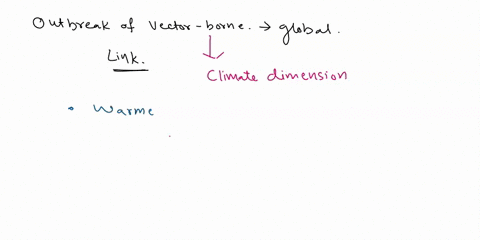 Outbreak of vector-borne. → global.
Link.
Climate dimension
• Warme